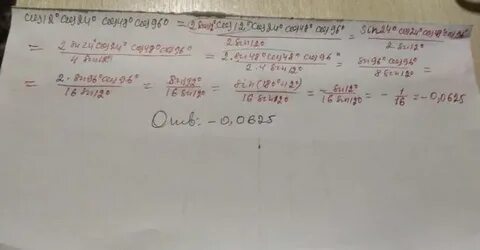 cos12° cos24° cos48° cos96° = 2sin12° cos12° cos24° cos48° cos96° / 2sin12° = sin24° cos24° cos48° cos96° / 2sin12°
= 2sin24° cos24° cos48° cos96° / 4sin12° = 2·sin48° cos48° cos96° / 2·4sin12° = sin96° cos96° / 8sin12° =
= 2·sin96° cos96° / 16sin12° = sin192° / 16sin12° = sin(180°+12°) / 16sin12° = -sin12° / 16sin12° = -1/16 = -0,0625
Отв: -0,0625